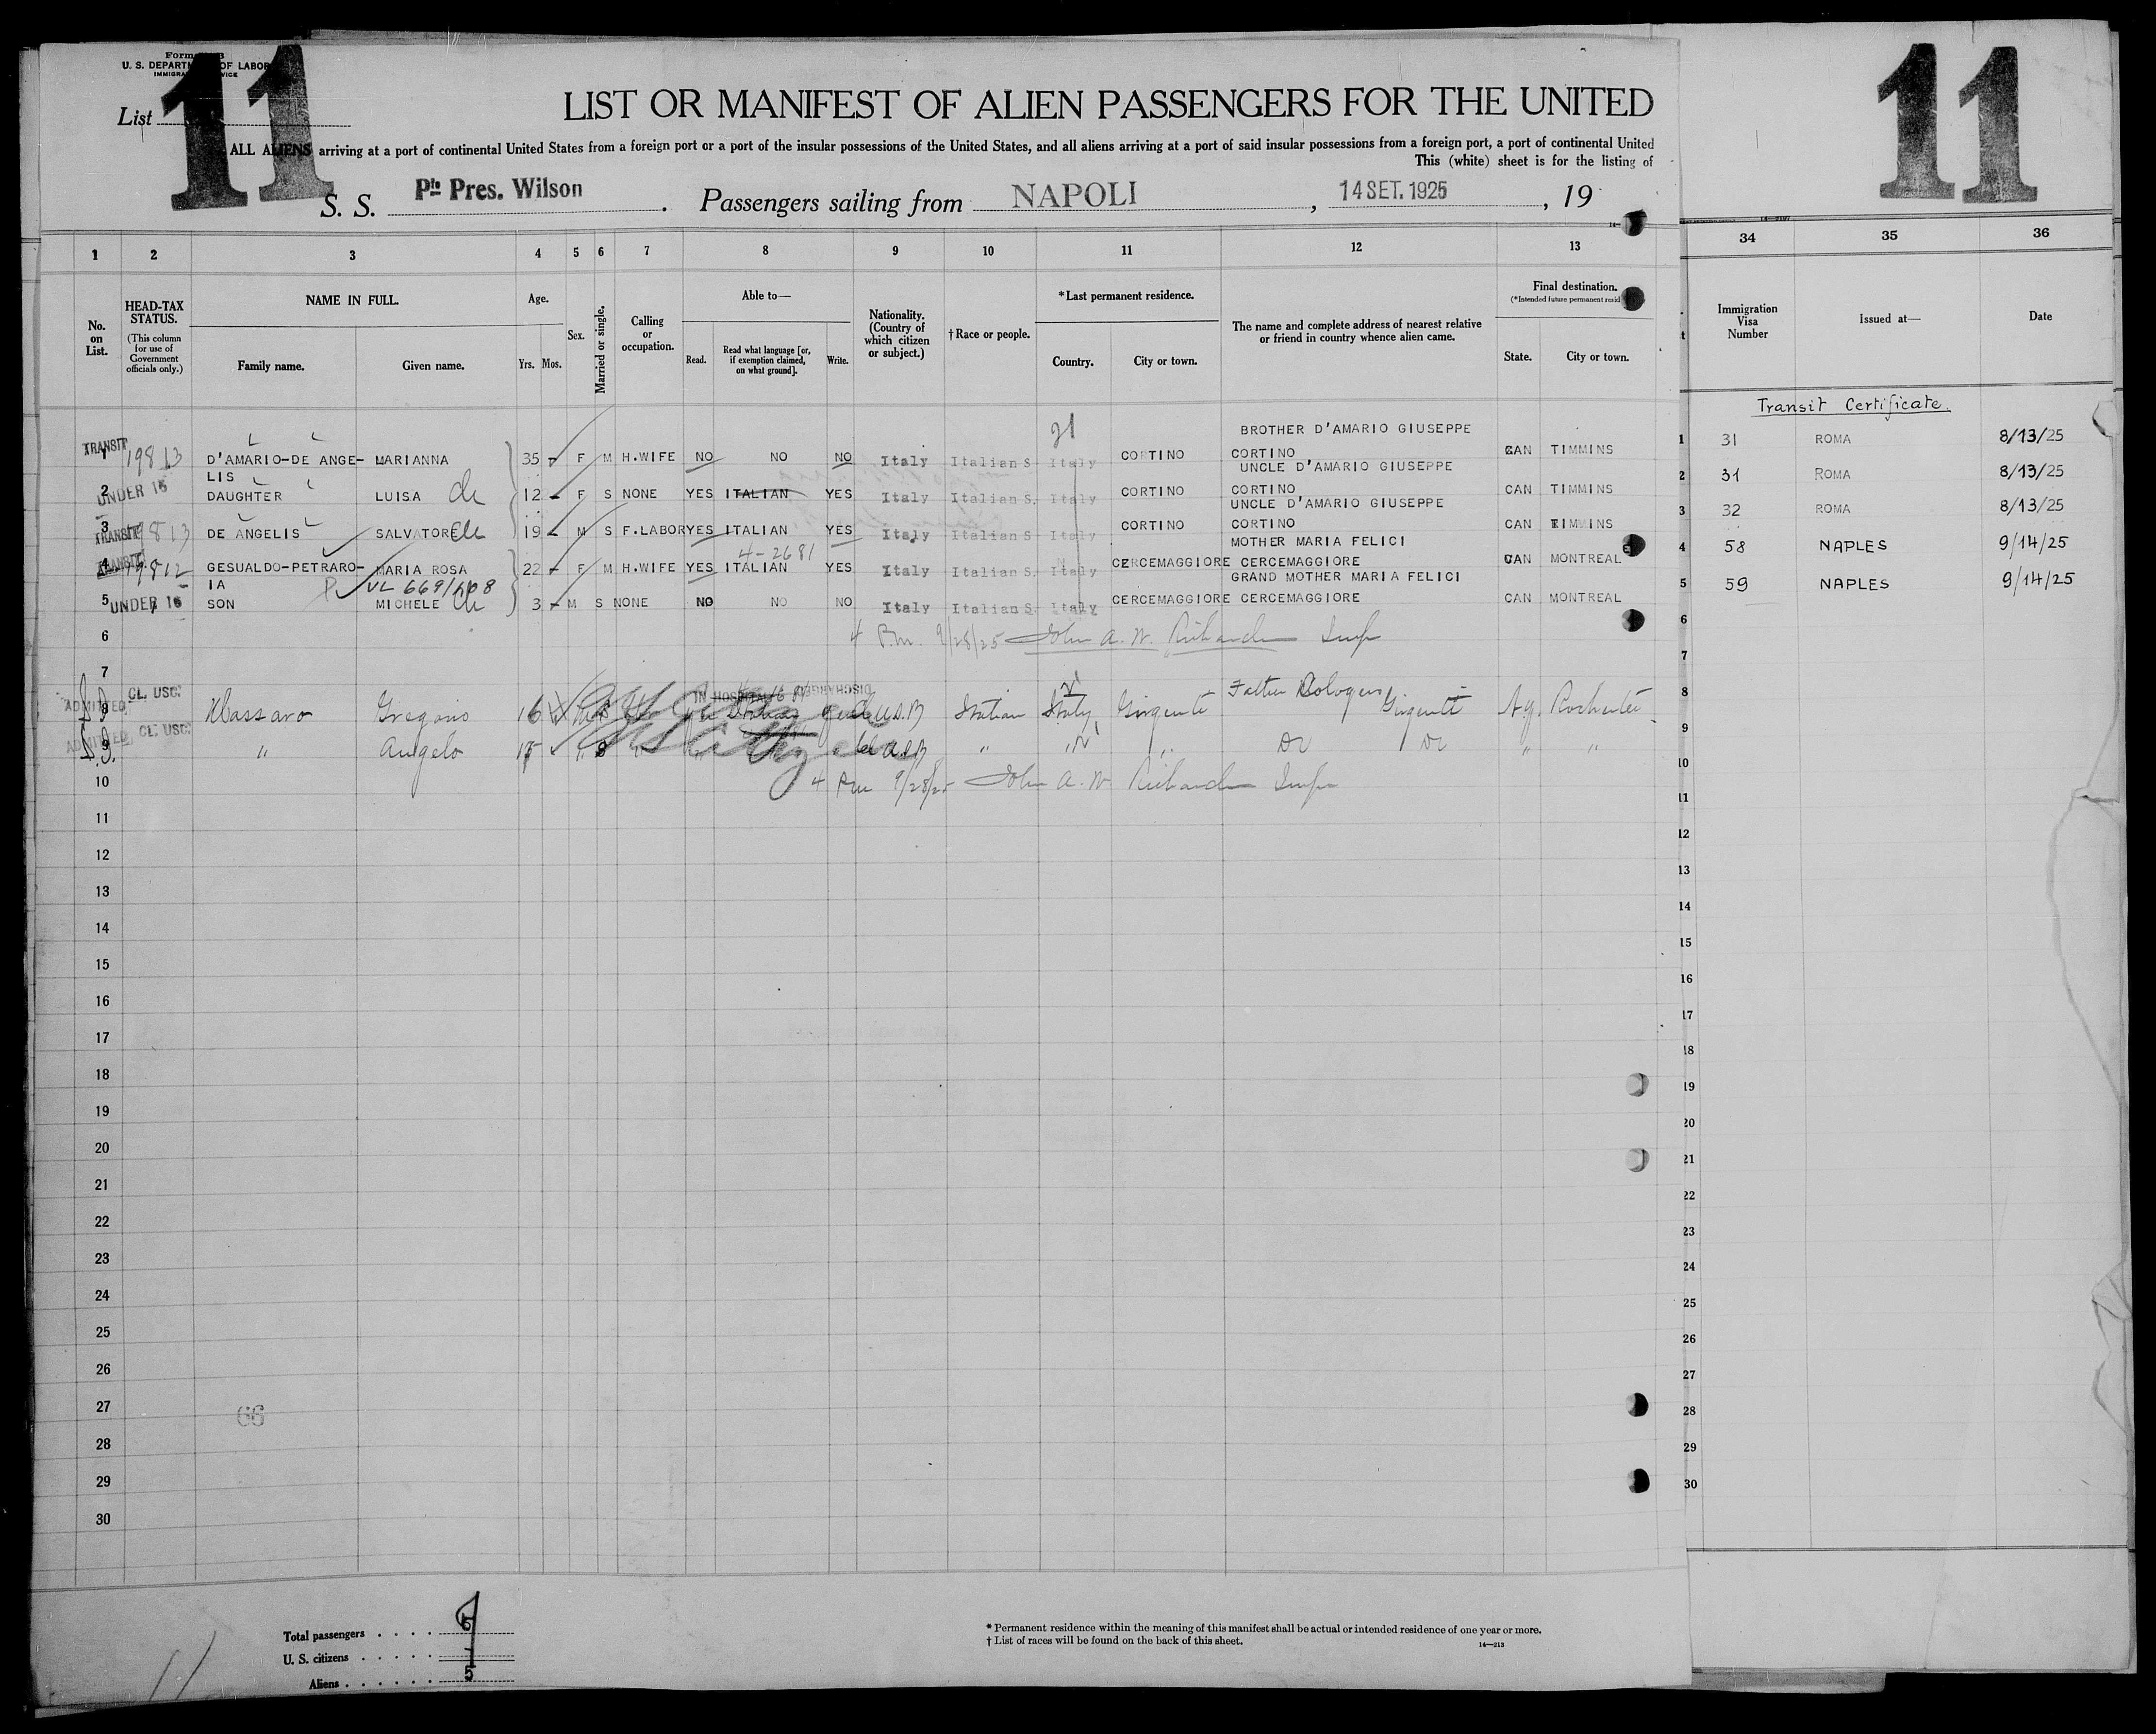 11
U. S. DEPARTMENT OF LABOR
IMMIGRATION SERVICE
List
LIST OR MANIFEST OF ALIEN PASSENGERS FOR THE UNITED
ALL ALIENS arriving at a port of continental United States from a foreign port or a port of the insular possessions of the United States, and all aliens arriving at a port of said insular possessions from a foreign port, a port of continental United
This (white) sheet is for the listing of
S. S. Pte Pres. Wilson . Passengers sailing from NAPOLI , 14 SET. 1925 , 19
11
1 2 3 4 5 6 7 8 9 10 11 12 13 34 35 36
No. on List.
HEAD-TAX STATUS.
(This column for use of Government officials only.)
NAME IN FULL.
Family name. Given name.
Age.
Yrs. Mos.
Sex.
Married or single.
Calling or occupation.
Able to—
Read. Read what language [or, if exemption claimed, on what ground]. Write.
Nationality. (Country of which citizen or subject.)
† Race or people.
*Last permanent residence.
Country. City or town.
The name and complete address of nearest relative or friend in country whence alien came.
Final destination.
(*Intended future permanent resid
State. City or town.
Immigration Visa Number
Issued at—
Date
Transit Certificate.
21
BROTHER D'AMARIO GIUSEPPE
TRANSIT 1 19813 D'AMARIO-DE ANGE- MARIANNA 35 F M H.WIFE NO NO NO Italy Italian S Italy CORTINO CORTINO CAN TIMMINS 1 31 ROMA 8/13/25
LIS UNCLE D'AMARIO GIUSEPPE
UNDER 16 2 DAUGHTER LUISA 12 F S NONE YES ITALIAN YES Italy Italian S. Italy CORTINO CORTINO CAN TIMMINS 2 31 ROMA 8/13/25
UNCLE D'AMARIO GIUSEPPE
TRANSIT 3 19813 DE ANGELIS SALVATORE 19 M S F.LABOR YES ITALIAN YES Italy Italian S. Italy CORTINO CORTINO CAN TIMMINS 3 32 ROMA 8/13/25
4-2681 MOTHER MARIA FELICI
TRANSIT 4 19812 GESUALDO-PETRARO- MARIA ROSA 22 F M H.WIFE YES ITALIAN YES Italy Italian S. Italy CERCEMAGGIORE CERCEMAGGIORE CAN MONTREAL 4 58 NAPLES 9/14/25
IA VL 669/608 GRAND MOTHER MARIA FELICI
UNDER 16 5 SON MICHELE 3 M S NONE NO NO NO Italy Italian S Italy CERCEMAGGIORE CERCEMAGGIORE CAN MONTREAL 5 59 NAPLES 9/14/25
6 4 P.m. 9/28/25 John A. W. Richards Insp 6
7 7
IN HOSPITAL DISCHARGED
ADMITTED 8 CL. USC. Massaro Gregorio 16 U.S. Citizen U.S.A Italian Italy Girgenti Father Bologers Girgenti N.Y. Rochester 8
ADMITTED 9 CL. USC. " Angelo 15 " S " U.S.A " " " Do Do " " 9
10 4 Pm 9/28/25 John A. W. Richards Insp 10
11 11
12 12
13 13
14 14
15 15
16 16
17 17
18 18
19 19
20 20
21 21
22 22
23 23
24 24
25 25
26 26
27 66 27
28 28
29 29
30 30
Total passengers
U. S. citizens
Aliens 5
11
* Permanent residence within the meaning of this manifest shall be actual or intended residence of one year or more.
† List of races will be found on the back of this sheet. 14—213